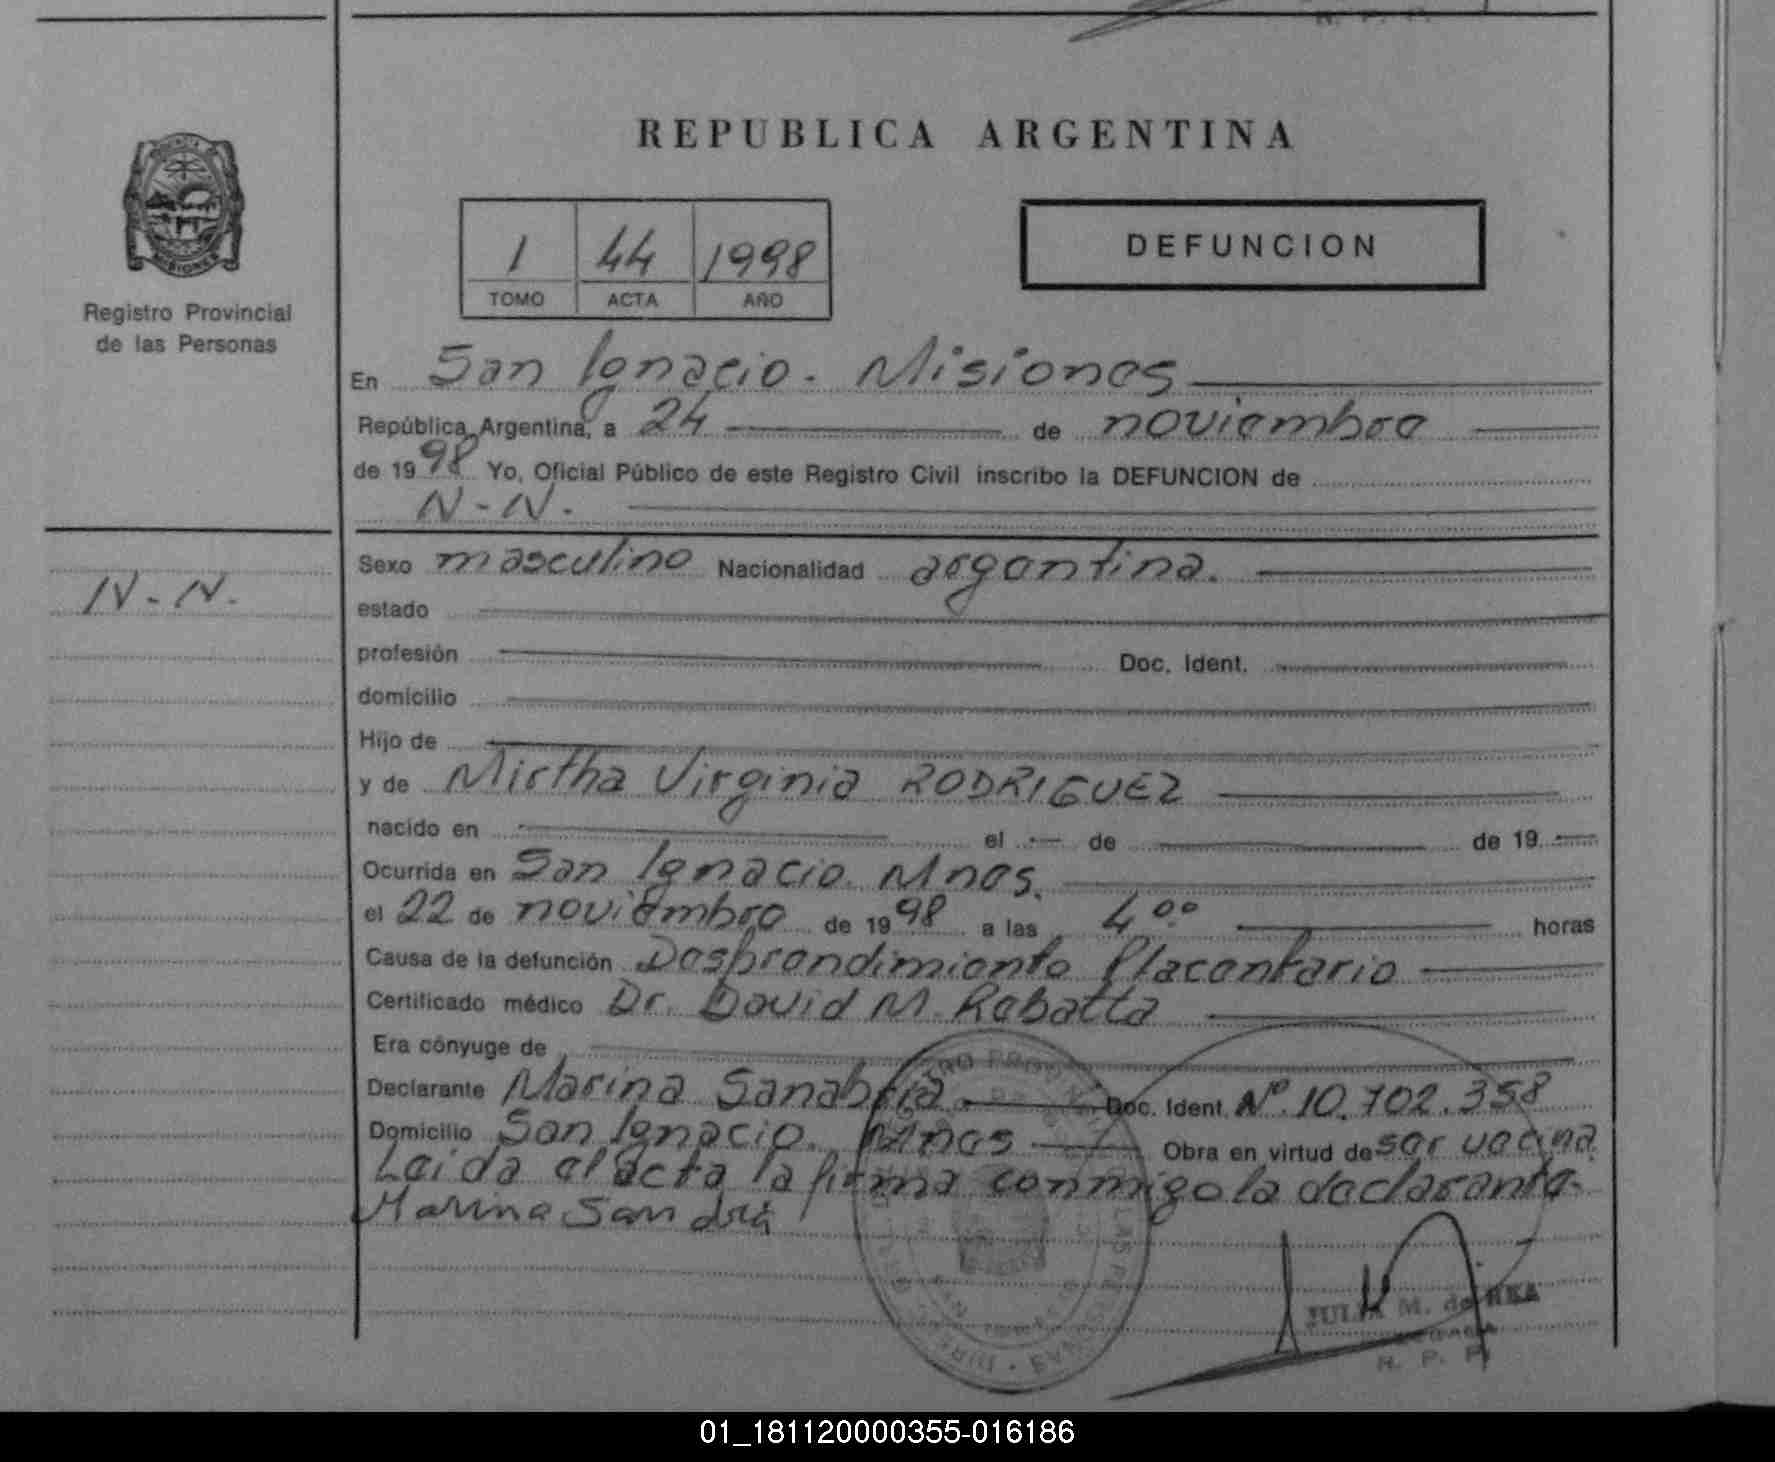 REPUBLICA ARGENTINA
1 44 1998
TOMO ACTA AÑO
DEFUNCION
MISIONES
Registro Provincial
de las Personas
En San Ignacio. Misiones
República Argentina, a 24 de noviembre
de 1998 Yo, Oficial Público de este Registro Civil inscribo la DEFUNCION de
N-N.
N-N.
Sexo masculino Nacionalidad argentina.
estado
profesión Doc. Ident.
domicilio
Hijo de
y de Mirtha Virginia RODRIGUEZ
nacido en el de de 19
Ocurrida en San Ignacio. Mnes.
el 22 de noviembre de 1998 a las 4ºº horas
Causa de la defunción Desprendimiento Placentario
Certificado médico Dr. David M. Rabatta
Era cónyuge de
Declarante Marina Sanabria. Doc. Ident. Nº.10.702.358
Domicilio San Ignacio. Mnes Obra en virtud de ser vecina
Leida el acta la firma conmigo la declarante.
Marina
JULIA M. de REA
R. P. P.
R. P. P.
01_181120000355-016186